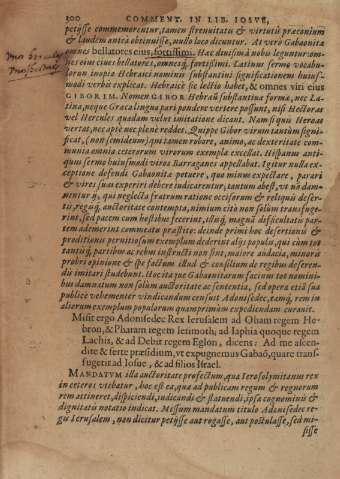 200 COMMENT. IN LIB. IOSVE,
petijsse commemorentur, tamen strenuitatis & virtutis præconium
& laudem antea obtinuisse, nullo loco dicuntur. At verò Gabaonitæ
omnes bellatores eius, fortissimi. Hac denísimâ nobis leguntur: om-
nes eius ciues bellatores, omnesq́; fortissimi. Latinus sermo vocabu-
lorum inopia Hebraici nominis substantiui significationem huius-
modi verbis explicat. Hebraicè sic lectio habet, & omnes viri eius
GIBORIM. Nomen GIBOR Hebræis substantiua forma, nec La-
tina, neque Græca lingua pari pondere vertere possunt, nisi Hectoras
vel Hercules quadam velut imitatione dicant. Nam si quis Heroas
vertat, nec aptè nec plenè reddet. Quippe Gibor virum tantùm signifi-
cat, (non semideum) qui tamen robore, animo, ac dexteritate com-
munia omnia ceterorum virorum exempla excellat. Hispanus anti-
quus sermo huiusmodi viros Barraganes appellabat. Igitur nulla ex-
ceptione defendi Gabaonitæ potuere, quo minus expectare, parari
& vires suas experiri debere iudicarentur, tantum abest, vt no dam-
mentur ij, qui neglecta fratrum ratione occiso rum & reliquis deser-
tis, regiq́; auctoritate contempta, nimium citò non solùm transfuge-
rint, sed pacem cum hostibus fecerint, istiusq́; magnā difficultatis par-
tem ademerint commeatu præstito: deinde primi hoc desertionis &
proditionis pernitiosum exemplum dederint alijs populis, qui cùm tot
tantisq́; partibus ac rebus instructi non sint, maiore audacia, minore
probri opinione & ipse factum illud & consilium de regibus deseren-
dis imitari studebunt. Hoc itaque Gabaonitarum facinus tot nomini-
bus damnatum non solùm auctoritate ac sententia, sed opera etiā sua
publicè vehementer vindicandum censuit Adonisedec, tamq́; rem in
aliorum exemplum populorum quamprimum expediendam curant.
Misit ergo Adonisedec Rex Ierusalem ad Oham regem He-
bron, & Pharam regem Ierimoth; ad Iaphia quoque regem
Lachis, & ad Debir regem Eglon, dicens: Ad me ascen-
dite & ferte præsidium, vt expugnemus Gabaō, quare trans-
fugerit ad Iosue, & ad filios Israel.
MANDATVM illa auctoritate profectum, qua Ierosolymitanus rex
in ceteros vtebatur, hoc est ea, quæ ad publicam regum & regnorum
rem attineret, dispiciendi, iudicandi & statuendi, ipsa cognominis &
dignitatis notatio indicat. Missum mandatum titulo Adonisedec re-
gis Ierusalem, non dicitur petijsse aut rogasse, aut postulasse, sed mi-
sisse